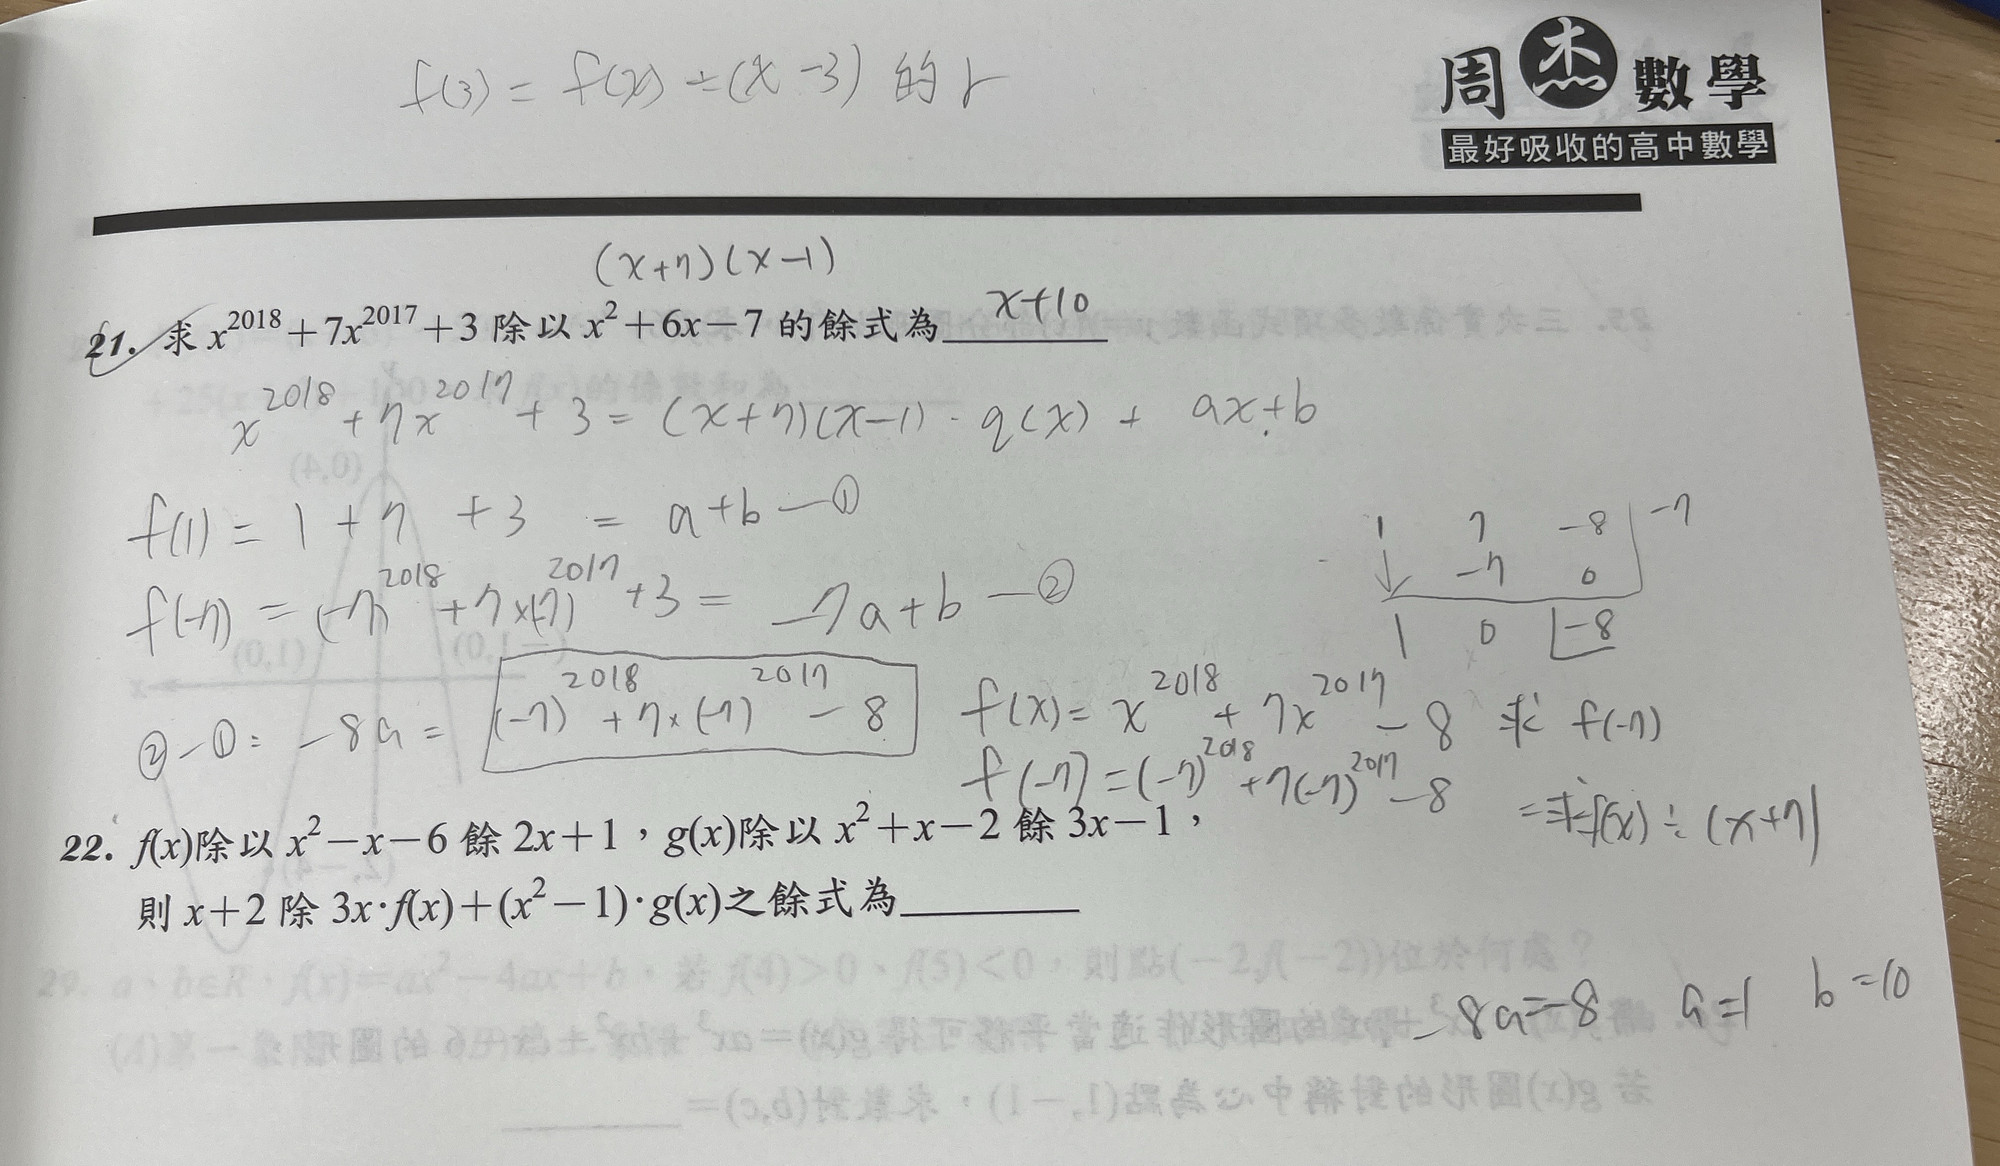 f(3) = f(x) ÷ (x-3) 的 r
周杰數學
最好吸收的高中數學
(x+7)(x-1)
21. 求 x²⁰¹⁸+7x²⁰¹⁷+3 除以 x²+6x-7 的餘式為 x+10
x²⁰¹⁸+7x²⁰¹⁷+3 = (x+7)(x-1)·q(x) + ax+b
f(1) = 1+7 +3 = a+b —①
f(-7) = (-7)²⁰¹⁸+7×(-7)²⁰¹⁷+3 = -7a+b —②
1 7 -8 | -7
-7 0
1 0 -8
②-①: -8a = (-7)²⁰¹⁸+7×(-7)²⁰¹⁷-8
f(x) = x²⁰¹⁸+7x²⁰¹⁷-8 求 f(-7)
f(-7) = (-7)²⁰¹⁸+7(-7)²⁰¹⁷-8
=求f(x)÷(x+7)
22. f(x)除以 x²-x-6 餘 2x+1，g(x)除以 x²+x-2 餘 3x-1，
則 x+2 除 3x·f(x)+(x²-1)·g(x)之餘式為
-8a=-8 a=1 b=10